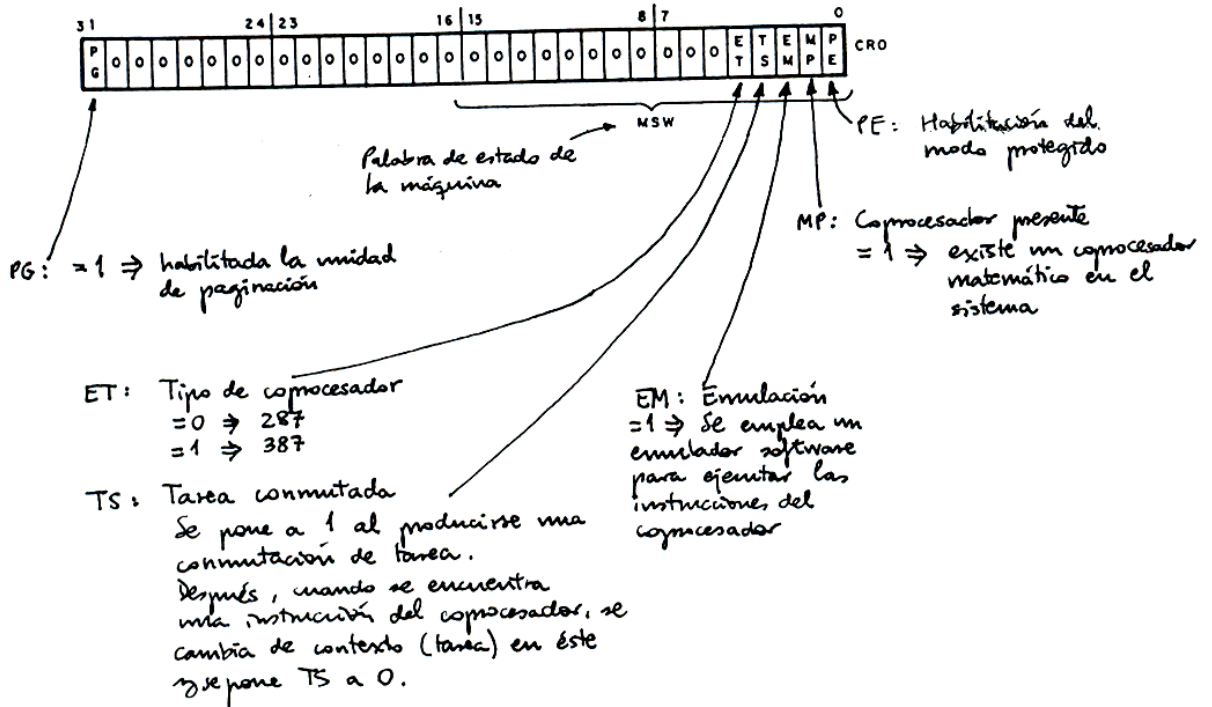 31 24 23 16 15 8 7 0
PG 0 0 0 0 0 0 0 0 0 0 0 0 0 0 0 0 0 0 0 0 0 0 0 0 0 0 ET TS EM MP PE CR0
MSW
Palabra de estado de
la máquina
PE: Habilitación del
modo protegido
MP: Coprocesador presente
=1 ⇒ existe un coprocesador
matemático en el
sistema
PG: =1 ⇒ habilitada la unidad
de paginación
ET: Tipo de coprocesador
=0 ⇒ 287
=1 ⇒ 387
EM: Emulación
=1 ⇒ Se emplea un
emulador software
para ejecutar las
instrucciones del
coprocesador
TS: Tarea conmutada
Se pone a 1 al producirse una
conmutación de tarea.
Después, cuando se encuentra
una instrucción del coprocesador, se
cambia de contexto (tarea) en éste
y se pone TS a 0.